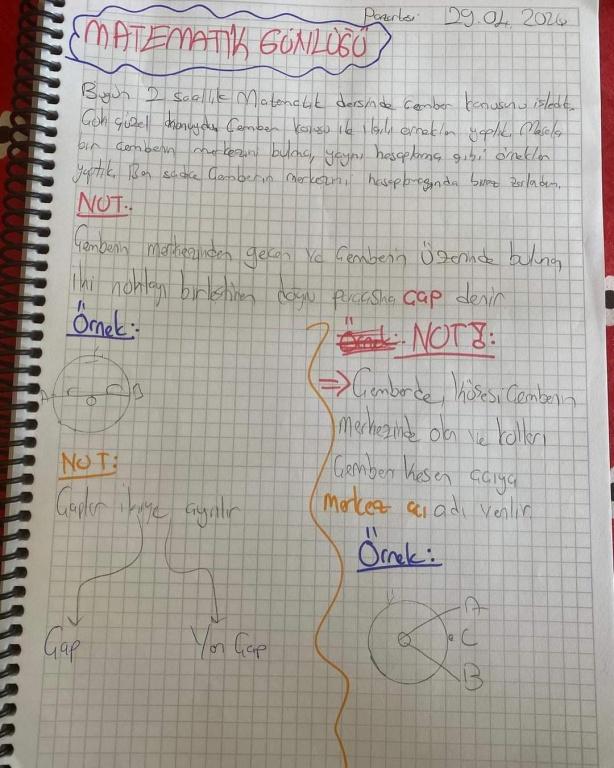 Pazartesi 29.04.2024
MATEMATİK GÜNLÜĞÜ
Bugün 2 saatlik Matematik dersinde Çember konusunu işledik.
Çok güzel Çember konusu ile ilgili örnekler yaptık. Mesela
bir Çemberin merkezini bulma, yayını hesaplama gibi örnekler
yaptık. Ben sadece Çemberin merkezini hesaplayacağında biraz zorlandım.
NOT:
Çemberin merkezinden geçen ve Çemberin Üzerinde bulunan
iki noktayı birleştiren doğru parçasına ÇAP denir
Örnek:
A O B
NOT:
Çaplar ikiye ayrılır
Çap Yarı Çap
NOT 8:
⇒ Çemberde, köşesi Çemberin
merkezinde olan ve kolları
Çemberi kesen açıya
merkez açı adı verilir
Örnek:
A
C
B